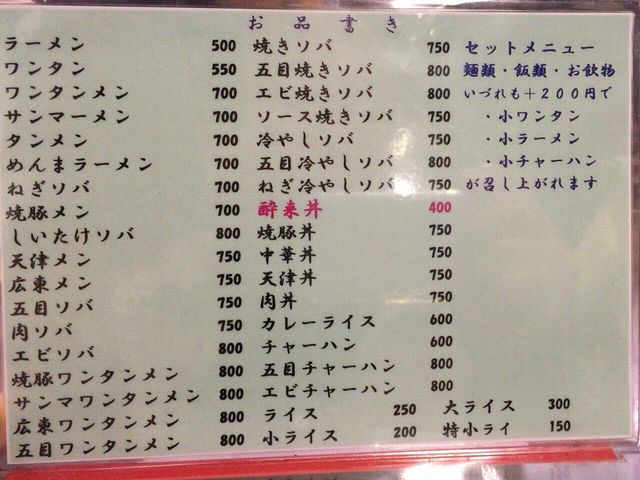 お品書き
ラーメン 500
ワンタン 550
ワンタンメン 700
サンマーメン 700
タンメン 700
めんまラーメン 700
ねぎソバ 700
焼豚メン 700
しいたけソバ 800
天津メン 750
広東メン 750
五目ソバ 750
肉ソバ 750
エビソバ 800
焼豚ワンタンメン 800
サンマワンタンメン 800
広東ワンタンメン 800
五目ワンタンメン 800
焼きソバ 750
五目焼きソバ 800
エビ焼きソバ 800
ソース焼きソバ 750
冷やしソバ 750
五目冷やしソバ 800
ねぎ冷やしソバ 750
酔来丼 400
焼豚丼 750
中華丼 750
天津丼 750
肉丼 750
カレーライス 600
チャーハン 600
五目チャーハン 800
エビチャーハン 800
ライス 250
小ライス 200
大ライス 300
特小ライ 150
セットメニュー
麺類・飯類・お飲物
いづれも+200円で
・小ワンタン
・小ラーメン
・小チャーハン
が召し上がれます